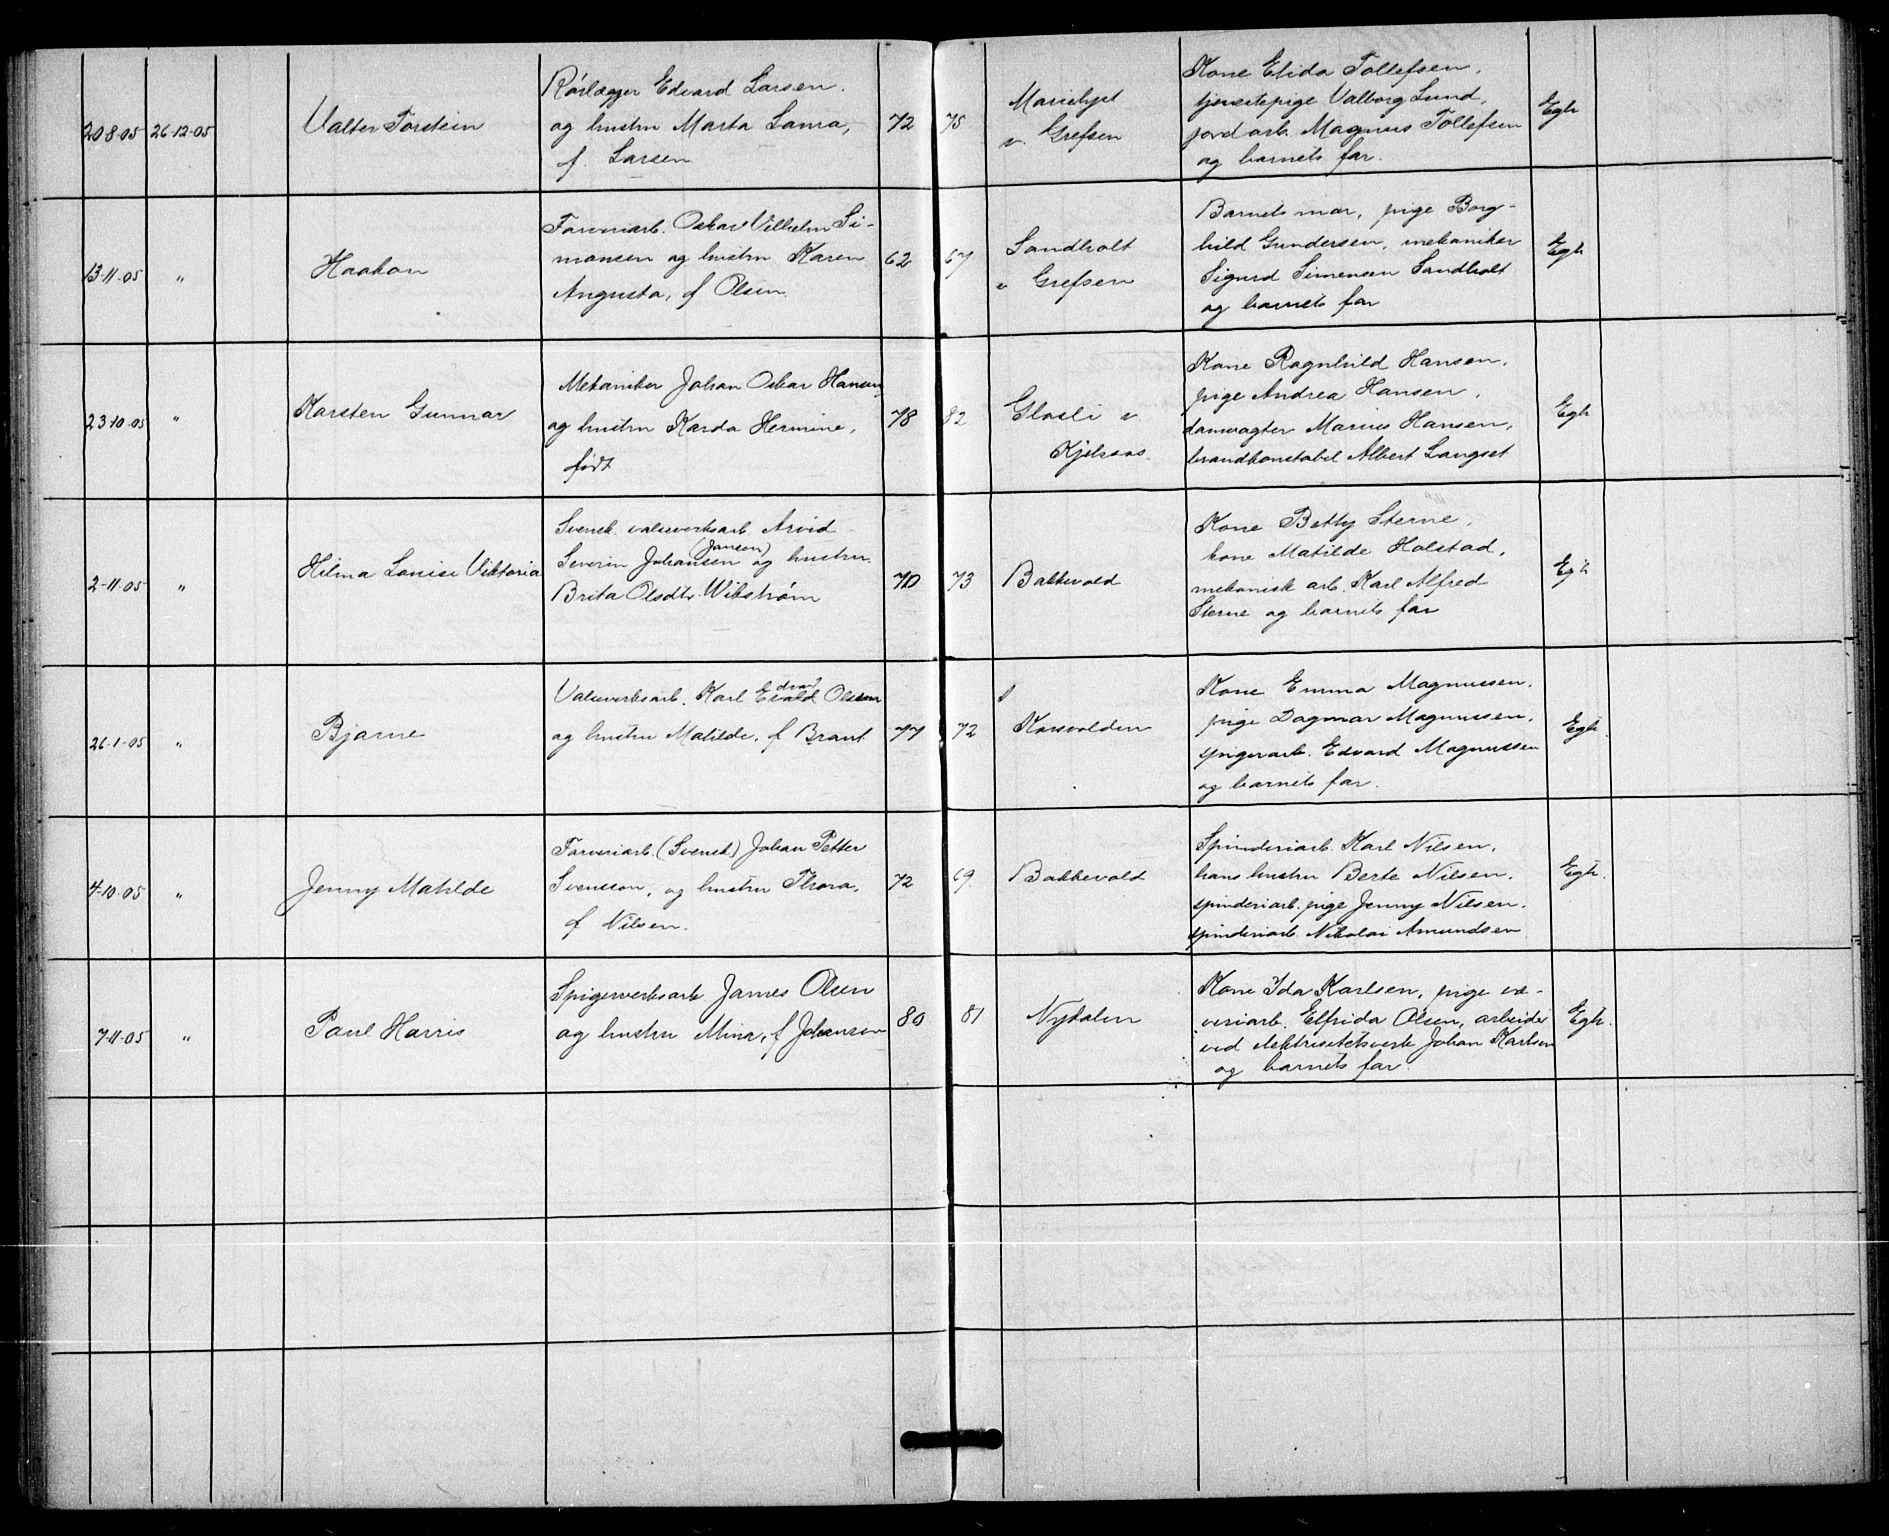 20-8-05 26-12-05 Valter Torstein
Rørlægger Edvard Larsen.
og hustru Marta Laura,
f. Larsen
72 75
Marielyst
v. Grefsen
Kone Elida Tollefsen,
tjenestepige Valborg Lund,
jordarb. Magnus Tollefsen
og barnets far.
Egh
13-11-05 " Haakon
Farveriarb. Oskar Vilhelm Si-
monsen og hustru Karen
Augusta, f Olsen.
62 67
Sandholt
v Grefsen
Barnets mor, pige Borg-
hild Gundersen, mekaniker
Sigurd Simensen Sandholt
og barnets far
Egh
23-10-05 " Karsten Gunnar
Mekaniker Johan Oskar Hansen,
og hustru Karda Hermine,
født
78 82
Glasli v.
Kjelsaas.
Kone Ragnhild Hansen,
pige Andrea Hansen,
damvagter Marius Hansen,
brandkonstabel Albert Langset
Egh
2-11-05 " Hilma Louise Viktoria
Svensk valseverksarb. Arvid
(Janson)
Severin Johansen og hustru
Brita Olsdtr. Wikstrøm
70 73
Bakkevold
Kone Betty Sterne,
kone Matilde Holstad,
mekanisk arb. Karl Alfred
Sterne og barnets far
Egh
26-1-05 " Bjarne
Valseverksarb. Karl Evald Olsson
og hustru Matilde, f Brant
77 72
Korsvolden
Kone Emma Magnussen,
pige Dagmar Magnussen,
spigerarb. Edvard Magnussen
og barnets far.
Egh.
4-10-05 " Jenny Matilde
Farveriarb. (Svensk) Johan Petter
Svensson, og hustru Thora,
f Nilsen.
72 69.
Bakkevold
Spinderiarb. Karl Nilsen,
hans hustru Berte Nilsen,
spinderiarb. pige Jenny Nilsen.
spinderiarb. Nikolai Amundsen
Egh.
7-11-05 " Paul Harris
Spigerverksarb James Olsen
og hustru Mina, f Johansen
80 81
Nydalen
Kone Ida Karlsen, pige væ-
veriarb. Elfrida Olsen, arbeider
ved elektrisitetsverk Johan Karlsen
og barnets far.
Egh.